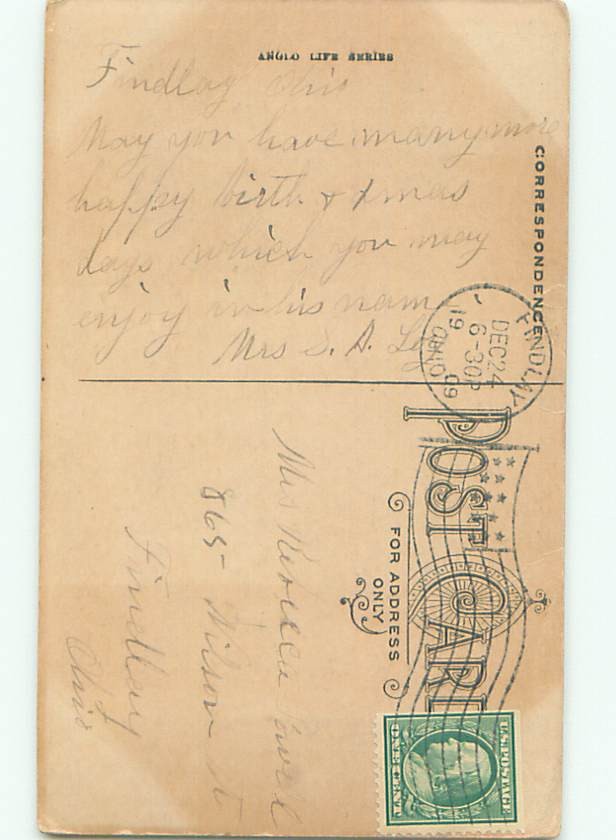 ANGLO LIFE SERIES
Findlay Ohio
May you have many more
happy birth & Xmas
days which you may
enjoy in his name
Mrs S. A.
CORRESPONDENCE
FINDLAY
DEC 24
6-30P
19 09
OHIO
POST CARD
FOR ADDRESS
ONLY
Mrs Rebecca
865 Wilson St
Findlay
Ohio
U.S. POSTAGE
ONE CENT